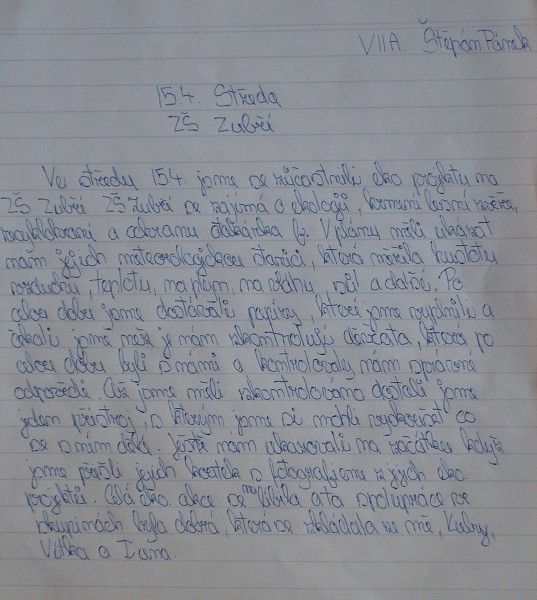 VII A Štěpán Pánek
15.4. Středa
ZŠ Zubří
Ve středu 15.4. jsme se zúčastnili eko projektu na
ZŠ Zubří ZŠ Zubří se zajímá o ekologii, krmení lesní zvěře,
recyklování a odchranu
V plánu měli ukázat
nám jejich meteorologickou stanici, která měřila hustotu
vzduchu, teplotu, na plyn, na vlhky, sůl a další. Po
celou dobu jsme dostávali papíry, které jsme vyplnili a
čekali jsme neže je nám zkontrolují děvčata, která po
celou dobu byli s námi a kontrolovaly nám správné
odpovědi. Až jsme měli zkontrolováno dostali jsme
jeden přístroj, s kterým jsme si mohli vyzkoušet co
se s ním dělá. Ještě nám ukazovali na začátku když
jsme přišli jejich koutek s fotografiemi z jejich eko
projektů. Celá eko akce se mě líbila a ta spolupráce ve
skupinách byla dobrá, která se skládala ze mě, Kuby,
Vítka a Jana.